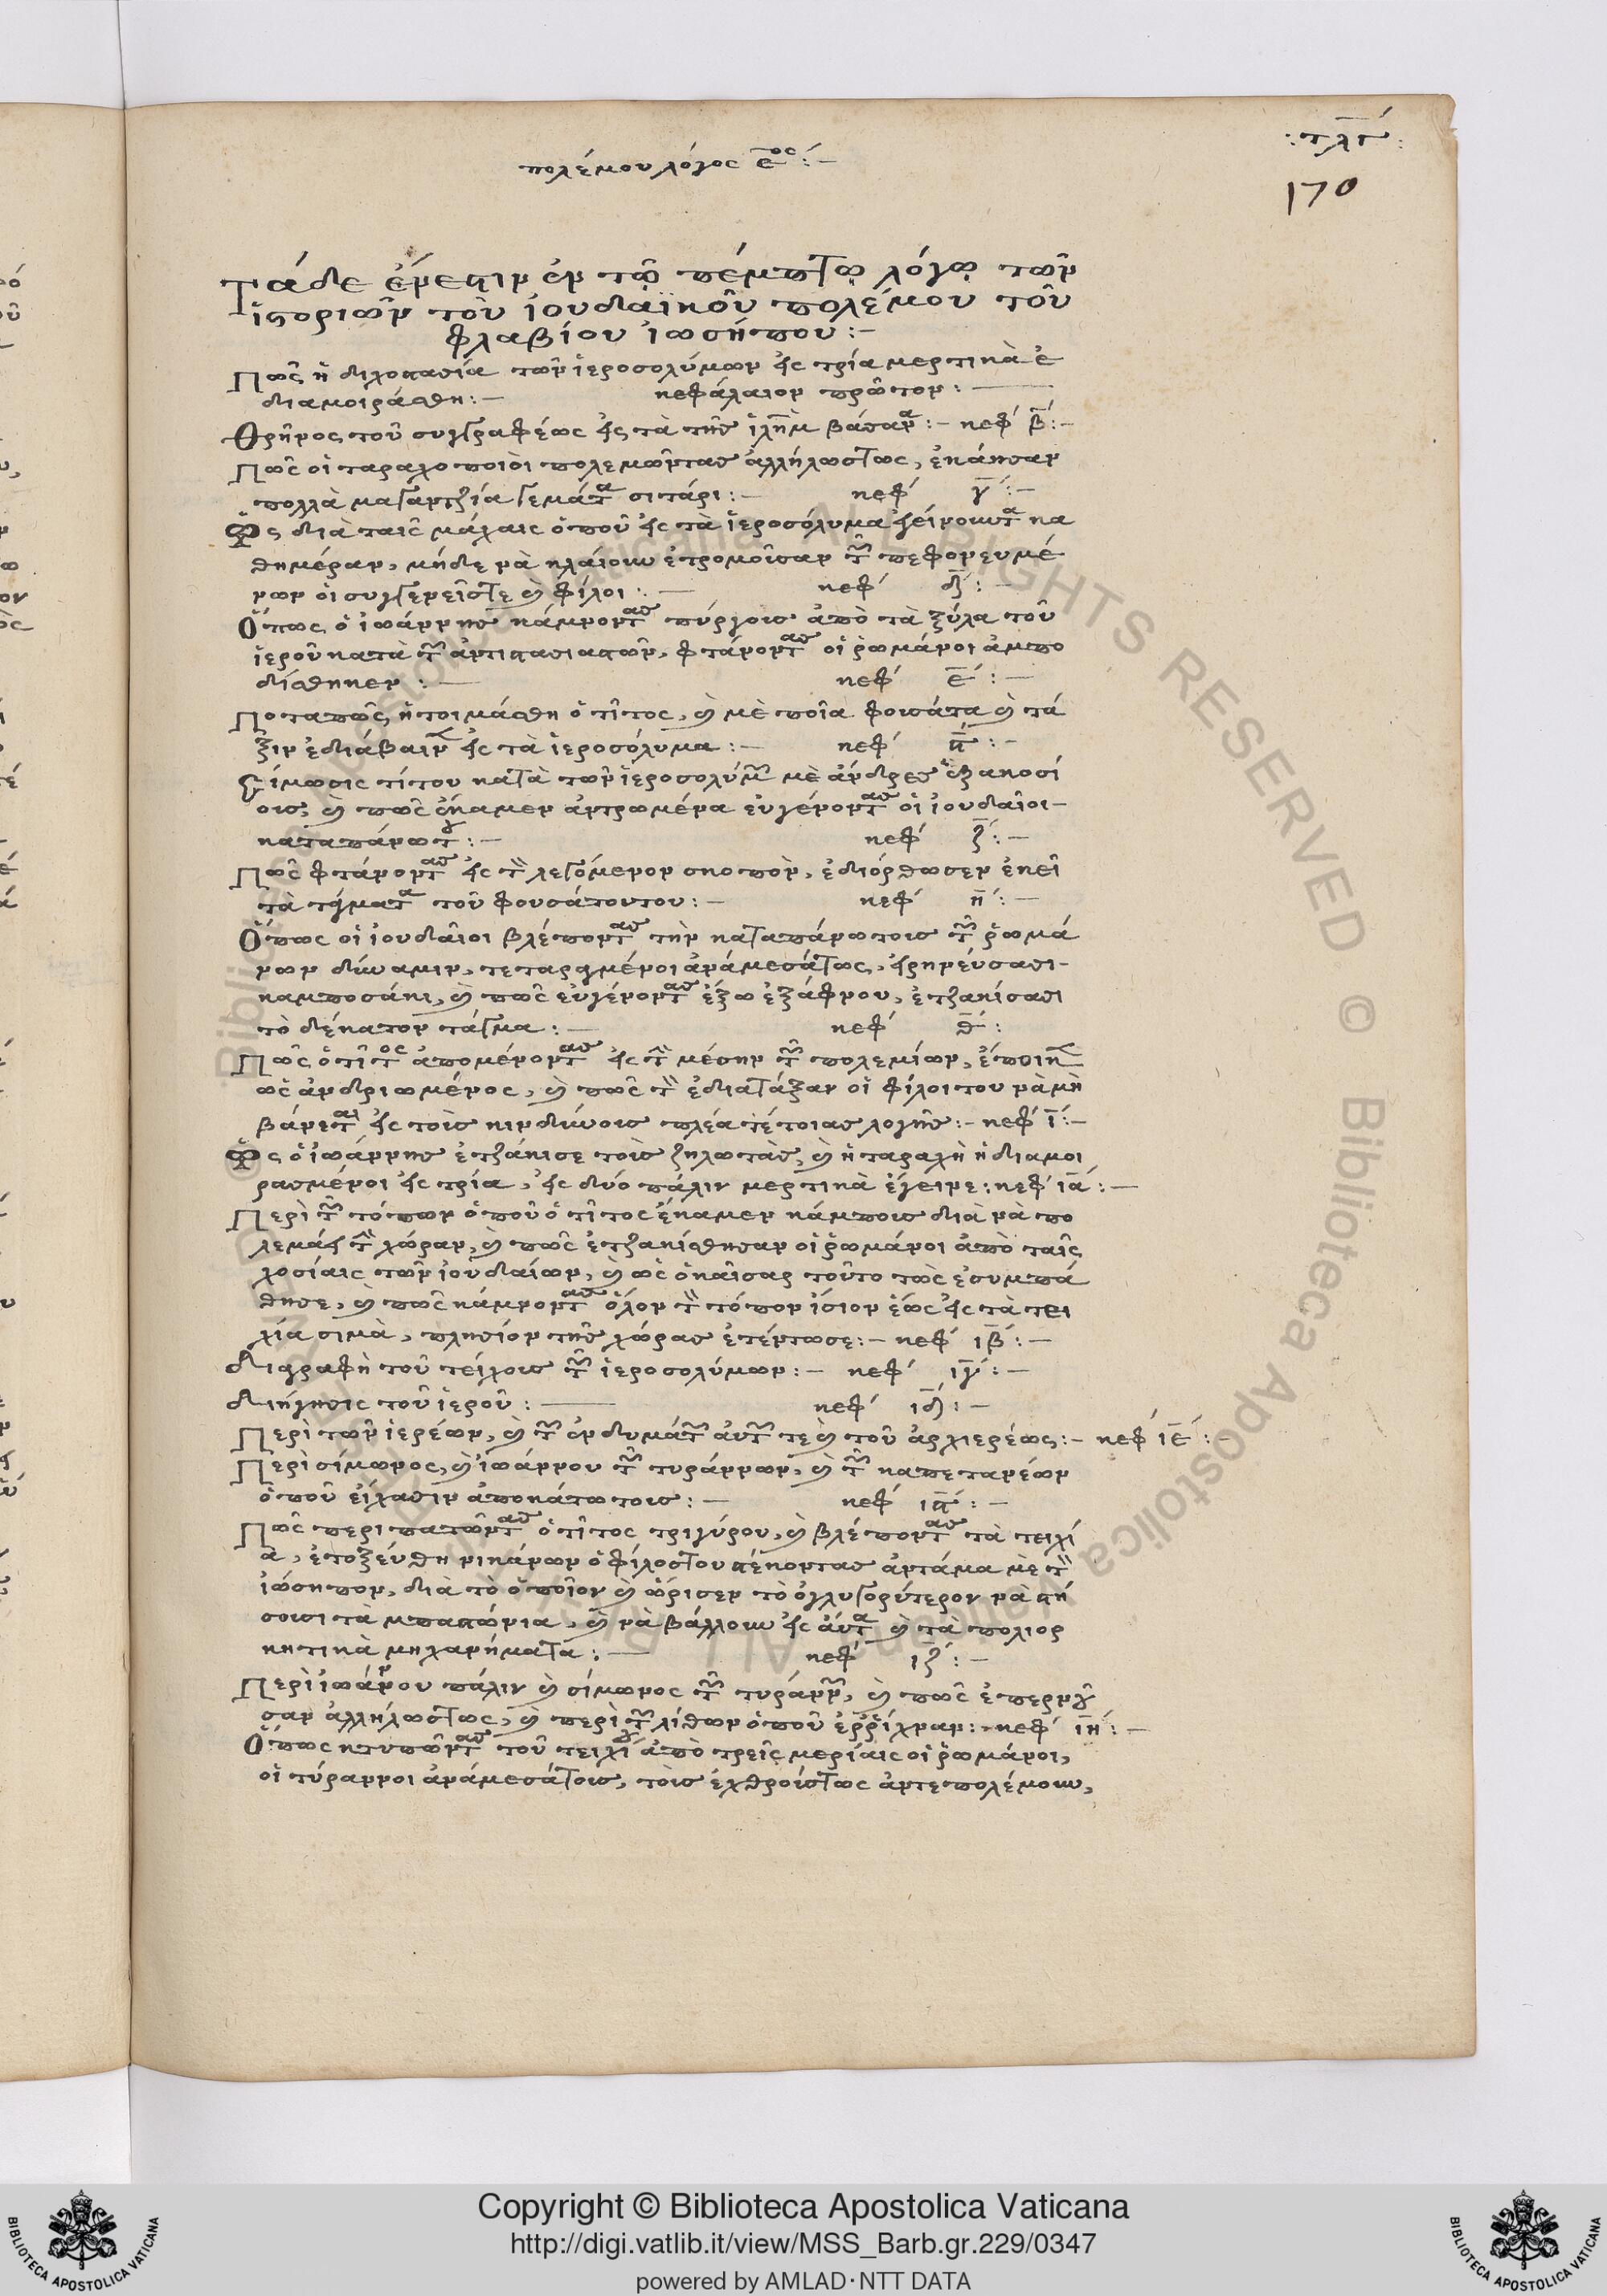 :τλγ:
170
πολέμου λόγος ε̅ος:—
Τάδε ἔνεστιν ἐν τῷ πέμπτῳ λόγῳ τῶν
ἱστοριῶν τοῦ ἰουδαϊκοῦ πολέμου τοῦ
φλαβίου ἰωσήπου:—
Πῶς ἡ διχοστασία τῶν ἱεροσολύμων εἰς τρία μερτικὰ ἐ
διαμοιράσθη:— κεφάλαιον πρῶτον:—
Θρῆνος τοῦ συγγραφέως εἰς τὰ τῆς ἱλη̅μ βάσανα:— κεφ β̅:—
Πῶς οἱ ταραχοποιοὶ πολεμῶντας ἀλλήλωςτως, ἐκάησαν
πολλὰ μαγαντζία γεμάτα σιτάρι:— κεφ γ̅:—
Ὡς διὰ ταῖς μάχαις ὁποῦ εἰς τὰ ἱεροσόλυμα ἐγείνουντα κα
θημέραν, μήδε νὰ κλαίουν ἐτρομοῦσαν τῶν πεφονευμέ
νων οἱ συγγενεῖςτε καὶ φίλοι:— κεφ δ̅:—
Ὅπως ὁ ἰωάννης κάμνοντας πύργους ἀπὸ τὰ ξύλα τοῦ
ἱεροῦ κατὰ τῶν ἀντιστασιαστῶν, φτάνοντας οἱ ῥωμάνοι ἀμπο
δίσθηκεν:— κεφ ε̅:—
Ποταπῶς ἡτοιμάσθη ὁ τίτος, καὶ μὲ ποῖα φουσάτα καὶ τά
ξιν ἐδιάβαινεν εἰς τὰ ἱεροσόλυμα:— κεφ ϛ̅:—
Σίμωσις τίτου κατὰ τῶν ἱεροσολύμων μὲ ἄνδρες ἑξακοσί
ους, καὶ πῶς ἔκαμεν ἀντρωμένα εὐγένοντας οἱ ἰουδαῖοι—
καταπάνωτου:— κεφ ζ̅:—
Πῶς φτάνοντας εἰς τὸν λεγόμενον σκοπὸν, ἐδιόρθωσεν ἐκεῖ
τὰ τάγματα τοῦ φουσάτουτου:— κεφ η̅:—
Ὅπως οἱ ἰουδαῖοι βλέποντας τὴν καταπάνωτους τῶν ῥωμά
νων δύναμιν, τεταραγμένοι ἀνάμεσάτως, εἰρηνεύσασι—
καμποσάκι, καὶ πῶς εὐγένοντας ἔξω ἐξάφνου, ἐτζακίσασι
τὸ δέκατον τάγμα:— κεφ θ̅:
Πῶς ὁ τίτος ἀπομένοντας εἰς τὴν μέσην τῶν πολεμίων, ἔποικεν
ὡς ἀνδριωμένος, καὶ πῶς τὸν ἐδιατάξαν οἱ φίλοι του νὰ μὴ
βάνεται εἰς τοὺς κινδύνους πλέα τέτοιας λογῆς:— κεφ ι̅:—
Ὡς ὁ ἰωάννης ἐτζάκισε τοὺς ζηλωτὰς, καὶ ἡ ταραχὴ ἡ διαμοι
ρασμένοι εἰς τρία, εἰς δύο πάλιν μερτικὰ ἔγεινε: κεφ ια̅:—
Περὶ τῶν τόπων ὁποῦ ὁ τίτος ἔκαμεν κάμπους διὰ νὰ πο
λεμάει τὴν χώραν, καὶ πῶς ἐτζακίσθησαν οἱ ῥωμάνοι ἀπὸ ταῖς
χοσίαις τῶν ἰουδαίων, καὶ ὡς ὁ καῖσαρ τοῦτο τως ἐσυμπά
θησε, καὶ πῶς κάμνοντας ὅλον τὸν τόπον ἴσιον ἕως εἰς τὰ τει
χία σιμὰ, πλησίον τῆς χώρας ἐτέντωσε:— κεφ ιβ̅:—
διαγραφὴ τοῦ τείχους τῶν ἱεροσολύμων:— κεφ ιγ̅:—
διήγησις τοῦ ἱεροῦ:— κεφ ιδ̅:—
Περὶ τῶν ἱερέων, καὶ τῶν ἐνδυμάτων αὐτῶν τε καὶ τοῦ ἀρχιερέως:— κεφ ιε̅:—
Περὶ σίμωνος, καὶ ἰωάννου τῶν τυράννων, καὶ τῶν καπετανέων
ὁποῦ εἴχασιν ἀποκάτωτους:— κεφ ιϛ̅:—
Πῶς περιπατῶντας ὁ τίτος τριγύρου, καὶ βλέποντας τὰ τειχί
α, ἐτοξεύθη νικάνωρ ὁ φίλοςτου στέκοντας ἀντάμα μὲ τὸν
ἰώσηπον, διὰ τὸ ὁποῖον καὶ ὥρισεν τὸ ὀγλυγορύτερον νὰ στή
σουσι τα μπαστιώνια, καὶ νὰ βάλλουν εἰς αὐτα καὶ τὰ πολιορ
κητικὰ μηχανήματα:— κεφ ιζ̅:—
Περὶ ἰωάννου πάλιν καὶ σίμωνος τῶν τυράννων, καὶ πῶς ἐπερνοῦ
σαν ἀλλήλωςτως, καὶ περὶ τῶν λίθων ὁποῦ ἐῤῥίχναν:— κεφ ιη̅:—
Ὅπως κτυπῶντας τοῦ τειχίου ἀπὸ τρεῖς μερίαις οἱ ῥωμάνοι,
οἱ τύραννοι ἀνάμεσάτους, τοὺς ἐχθρούςτως ἀντεπολέμουν,
Copyright © Biblioteca Apostolica Vaticana
http://digi.vatlib.it/view/MSS_Barb.gr.229/0347
powered by AMLAD·NTT DATA